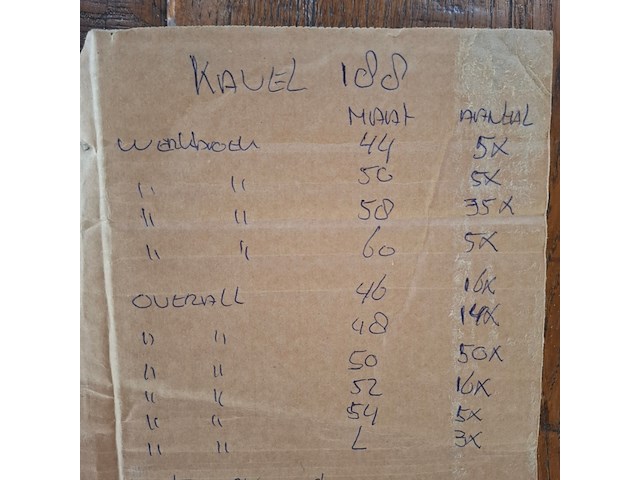 KAVEL 188
MAAT AANTAL
WERKBROEK 44 5X
" " 50 5X
" " 58 35X
" " 60 5X
OVERALL 46 16X
" " 48 14X
" " 50 50X
" " 52 16X
" " 54 5X
" " L 3X